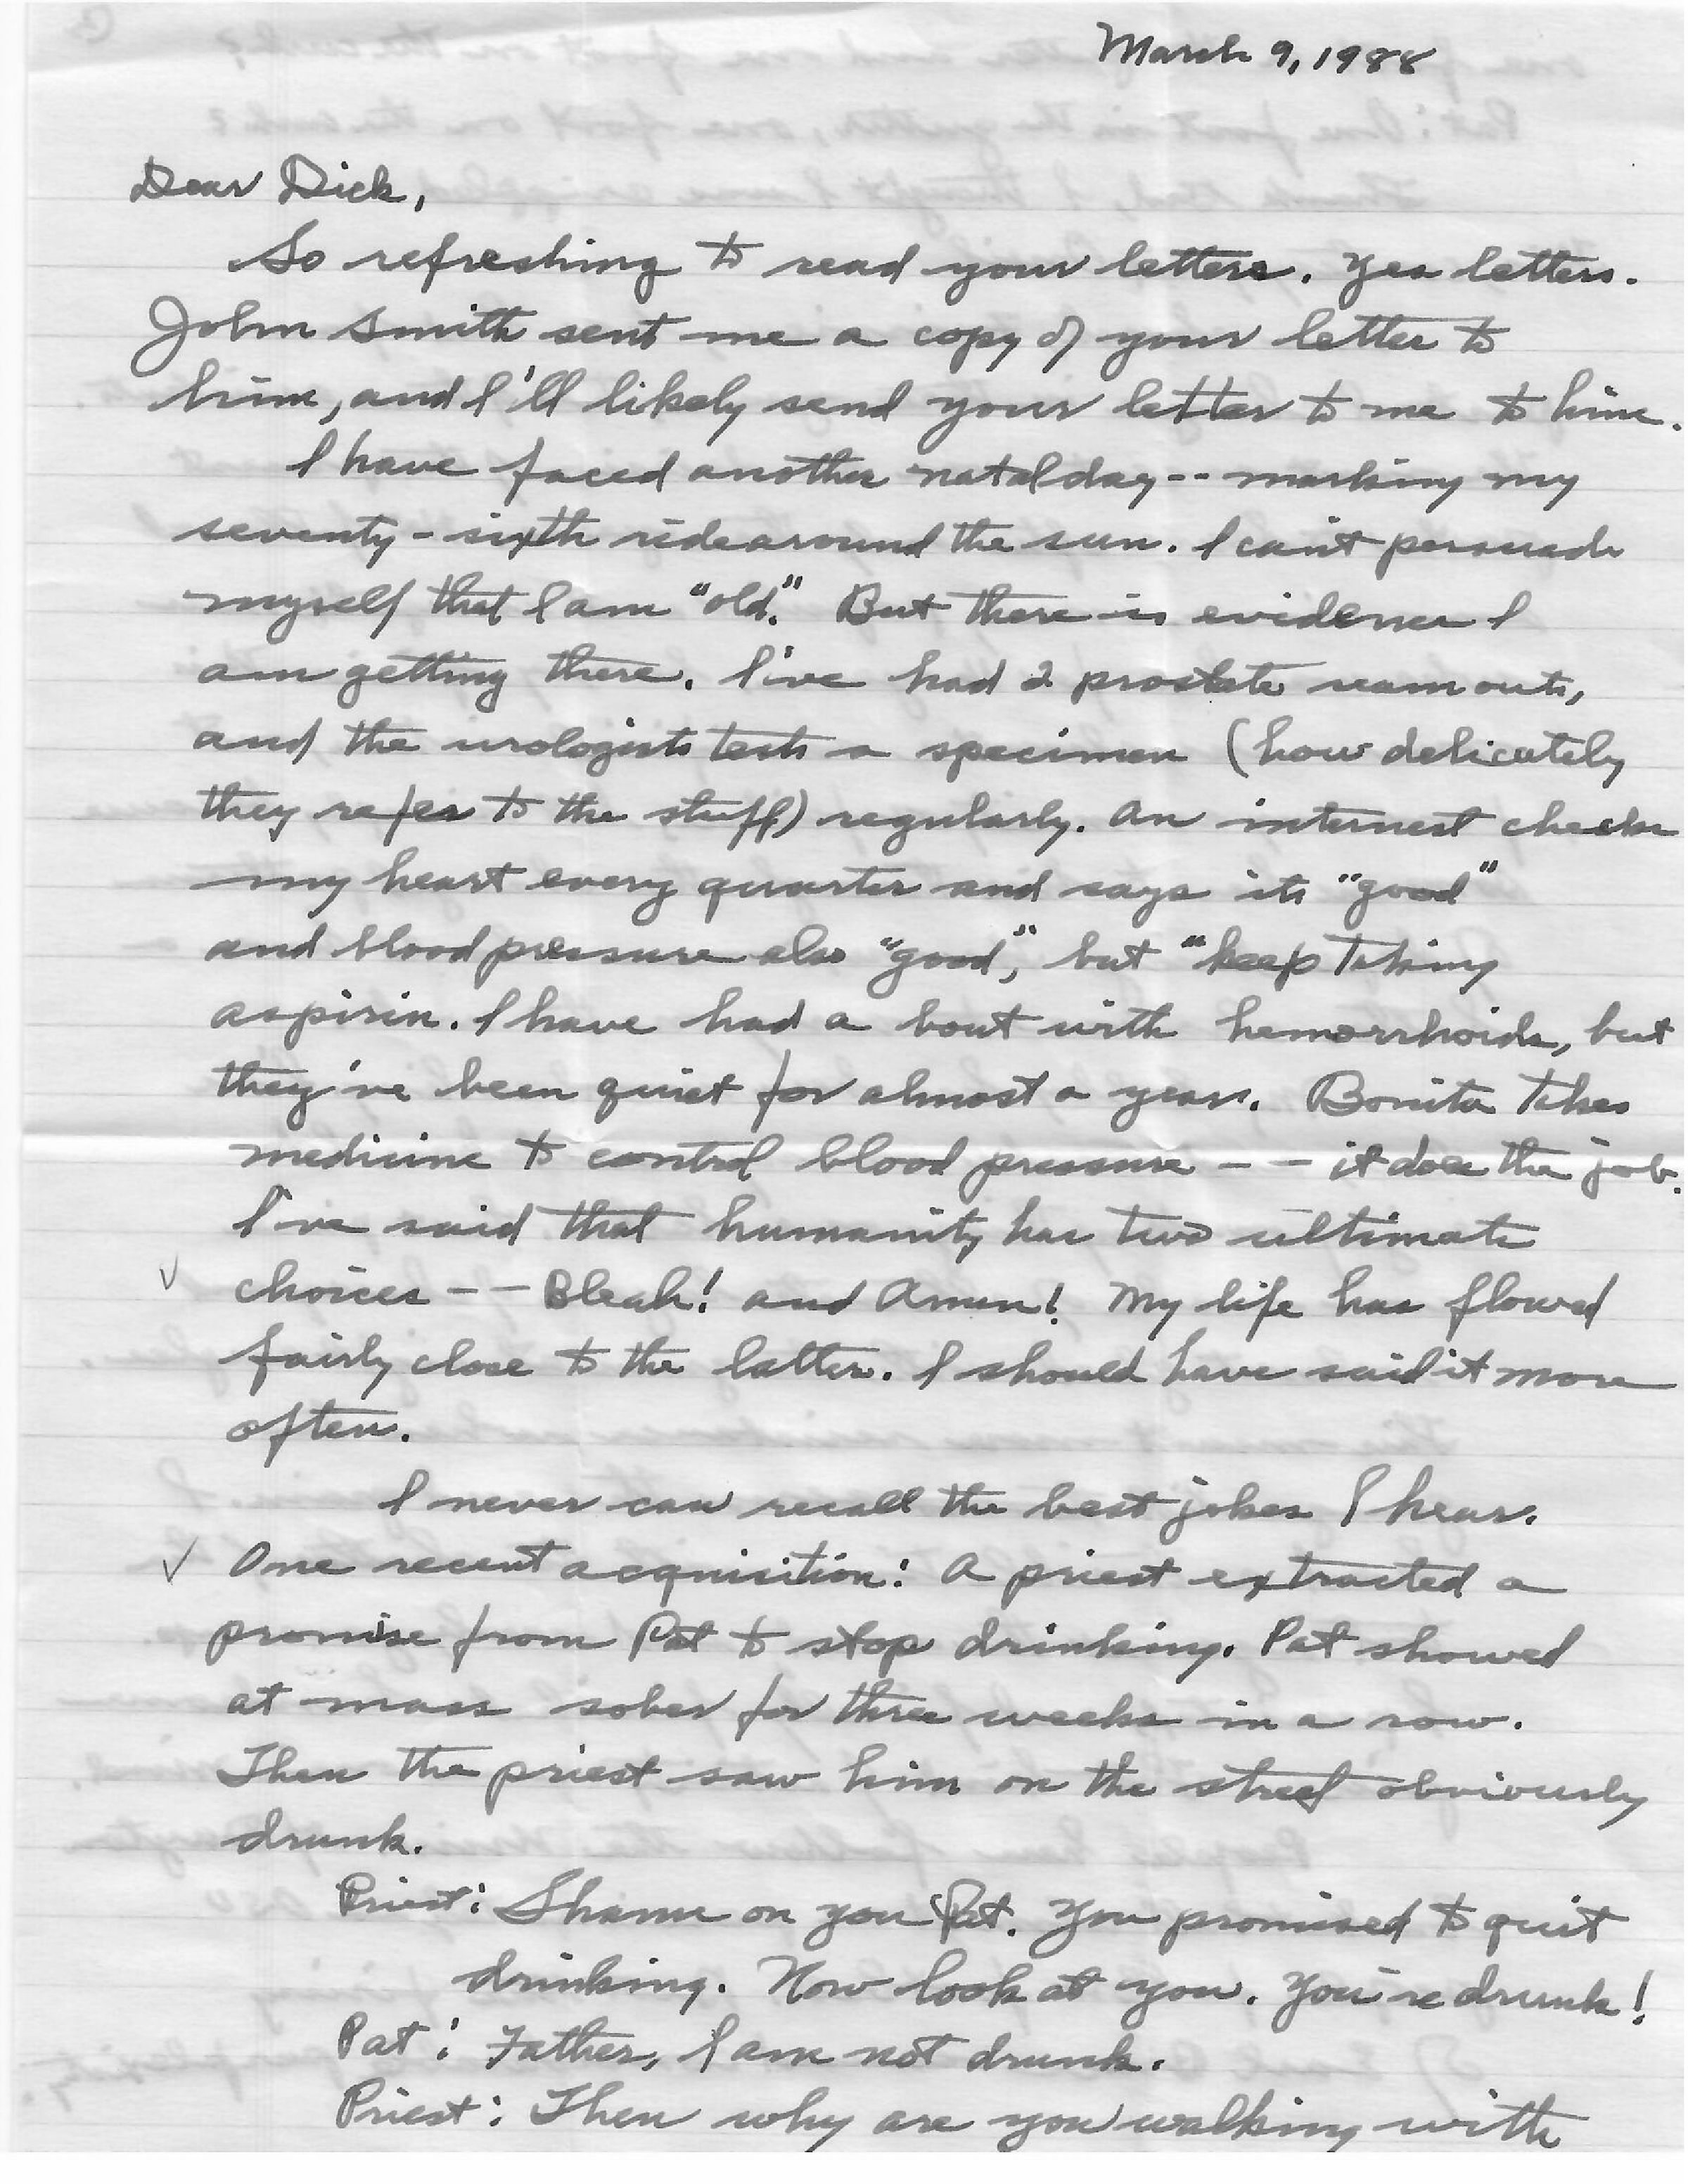 March 9, 1988
Dear Dick,
So refreshing to read your letters. Yes letters.
John Smith sent me a copy of your letter to
him, and I'll likely send your letter to me to him.
I have faced another natal day -- marking my
seventy-sixth ride around the sun. I can't persuade
myself that I am "old." But there is evidence I
am getting there. I've had 2 prostate ream outs,
and the urologists tests a specimen (how delicately
they refer to the stuff) regularly. An internest checks
my heart every quarter and says its "good"
and blood pressure also "good", but "keep taking
aspirin. I have had a bout with hemorrhoids, but
they've been quiet for almost a year. Bonita takes
medicine to control blood pressure -- it does the job.
I've said that humanity has two ultimate
choices -- Bleah! and Amen! My life has flowed
fairly close to the latter. I should have said it more
often.
I never can recall the best jokes I hear.
One recent acquisition: A priest extracted a
promise from Pat to stop drinking. Pat showed
at mass sober for three weeks in a row.
Then the priest saw him on the street obviously
drunk.
Priest: Shame on you Pat. You promised to quit
drinking. Now look at you. You're drunk!
Pat: Father, I am not drunk.
Priest: Then why are you walking with